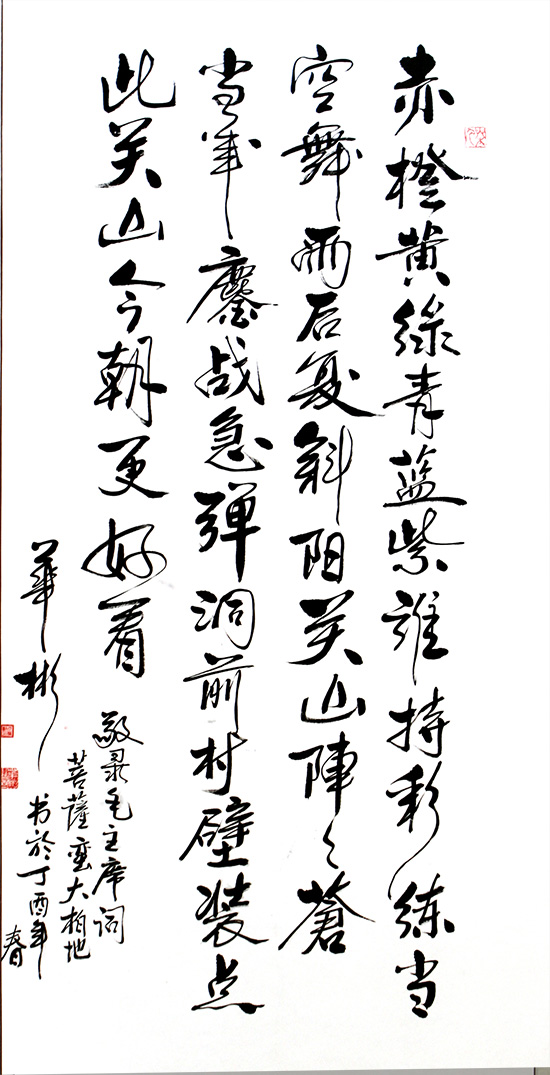 赤橙黄绿青蓝紫谁持彩练当
空舞雨后复斜阳关山陣々蒼
当年鏖战急弹洞前村壁装点
此关山今朝更好看
敬录毛主席词
菩薩蛮大柏地
书於丁酉年春
華彬